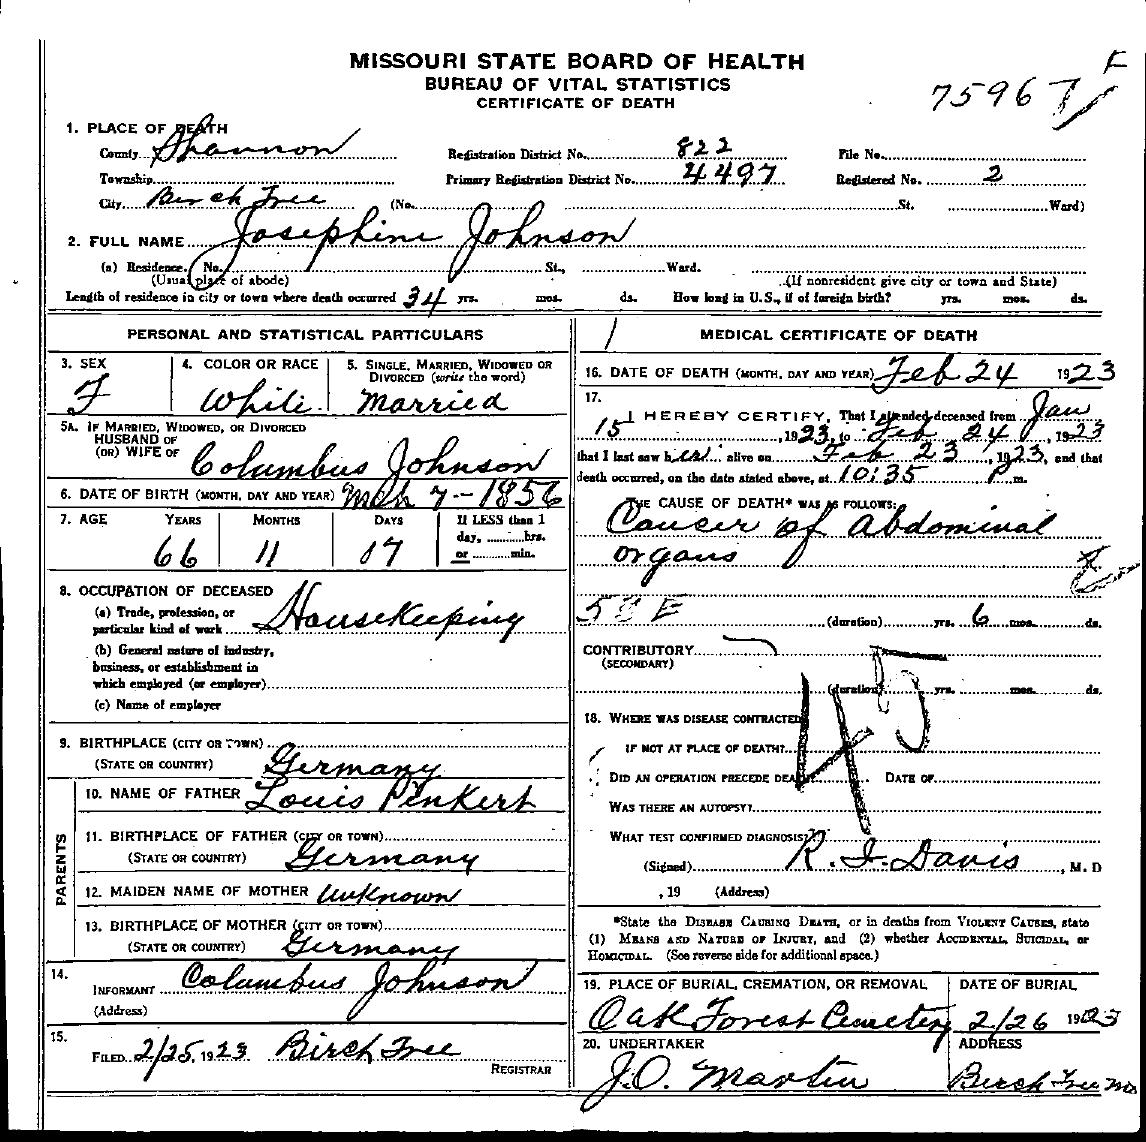 MISSOURI STATE BOARD OF HEALTH
BUREAU OF VITAL STATISTICS
CERTIFICATE OF DEATH
7596
F
1. PLACE OF DEATH
County Shannon Registration District No. 822 File No.
Township Primary Registration District No. 4497 Registered No. 2
City Birch Tree (No. St. Ward)
2. FULL NAME Josephine Johnson
(a) Residence. No. St., Ward.
(Usual place of abode) (If nonresident give city or town and State)
Length of residence in city or town where death occurred 34 yrs. mos. ds. How long in U.S., if of foreign birth? yrs. mos. ds.
PERSONAL AND STATISTICAL PARTICULARS
3. SEX 4. COLOR OR RACE 5. SINGLE, MARRIED, WIDOWED OR
DIVORCED (write the word)
F White Married
5A. IF MARRIED, WIDOWED, OR DIVORCED
HUSBAND OF
(OR) WIFE OF Columbus Johnson
6. DATE OF BIRTH (MONTH, DAY AND YEAR) Mch 7-1856
7. AGE YEARS MONTHS DAYS If LESS than 1
day, hrs.
or min.
66 11 17
8. OCCUPATION OF DECEASED
(a) Trade, profession, or
particular kind of work Housekeeping
(b) General nature of industry,
business, or establishment in
which employed (or employer)
(c) Name of employer
9. BIRTHPLACE (CITY OR TOWN)
(STATE OR COUNTRY) Germany
PARENTS
10. NAME OF FATHER Louis Pinkert
11. BIRTHPLACE OF FATHER (CITY OR TOWN)
(STATE OR COUNTRY) Germany
12. MAIDEN NAME OF MOTHER Unknown
13. BIRTHPLACE OF MOTHER (CITY OR TOWN)
(STATE OR COUNTRY) Germany
14.
INFORMANT Columbus Johnson
(Address)
15.
FILED 2/25, 1923 Birch Tree
REGISTRAR
MEDICAL CERTIFICATE OF DEATH
16. DATE OF DEATH (MONTH, DAY AND YEAR) Feb 24 1923
17.
I HEREBY CERTIFY, That I attended deceased from Jan
15, 1923, to Feb 24, 1923
that I last saw her alive on Feb 23, 1923, and that
death occurred, on the date stated above, at 10:35 P m.
THE CAUSE OF DEATH* WAS AS FOLLOWS:
Cancer of Abdominal
organs
(duration) yrs. 6 mos. ds.
CONTRIBUTORY
(SECONDARY)
(duration) yrs. mos. ds.
45
18. WHERE WAS DISEASE CONTRACTED
IF NOT AT PLACE OF DEATH?
DID AN OPERATION PRECEDE DEATH? DATE OF
WAS THERE AN AUTOPSY?
WHAT TEST CONFIRMED DIAGNOSIS?
(Signed) R. I. Davis, M. D
, 19 (Address)
*State the DISEASE CAUSING DEATH, or in deaths from VIOLENT CAUSES, state
(1) MEANS AND NATURE OF INJURY, and (2) whether ACCIDENTAL, SUICIDAL, or
HOMICIDAL. (See reverse side for additional space.)
19. PLACE OF BURIAL, CREMATION, OR REMOVAL DATE OF BURIAL
Oak Forest Cemetery 2/26 1923
20. UNDERTAKER ADDRESS
J.O. Martin Birch Tree Mo